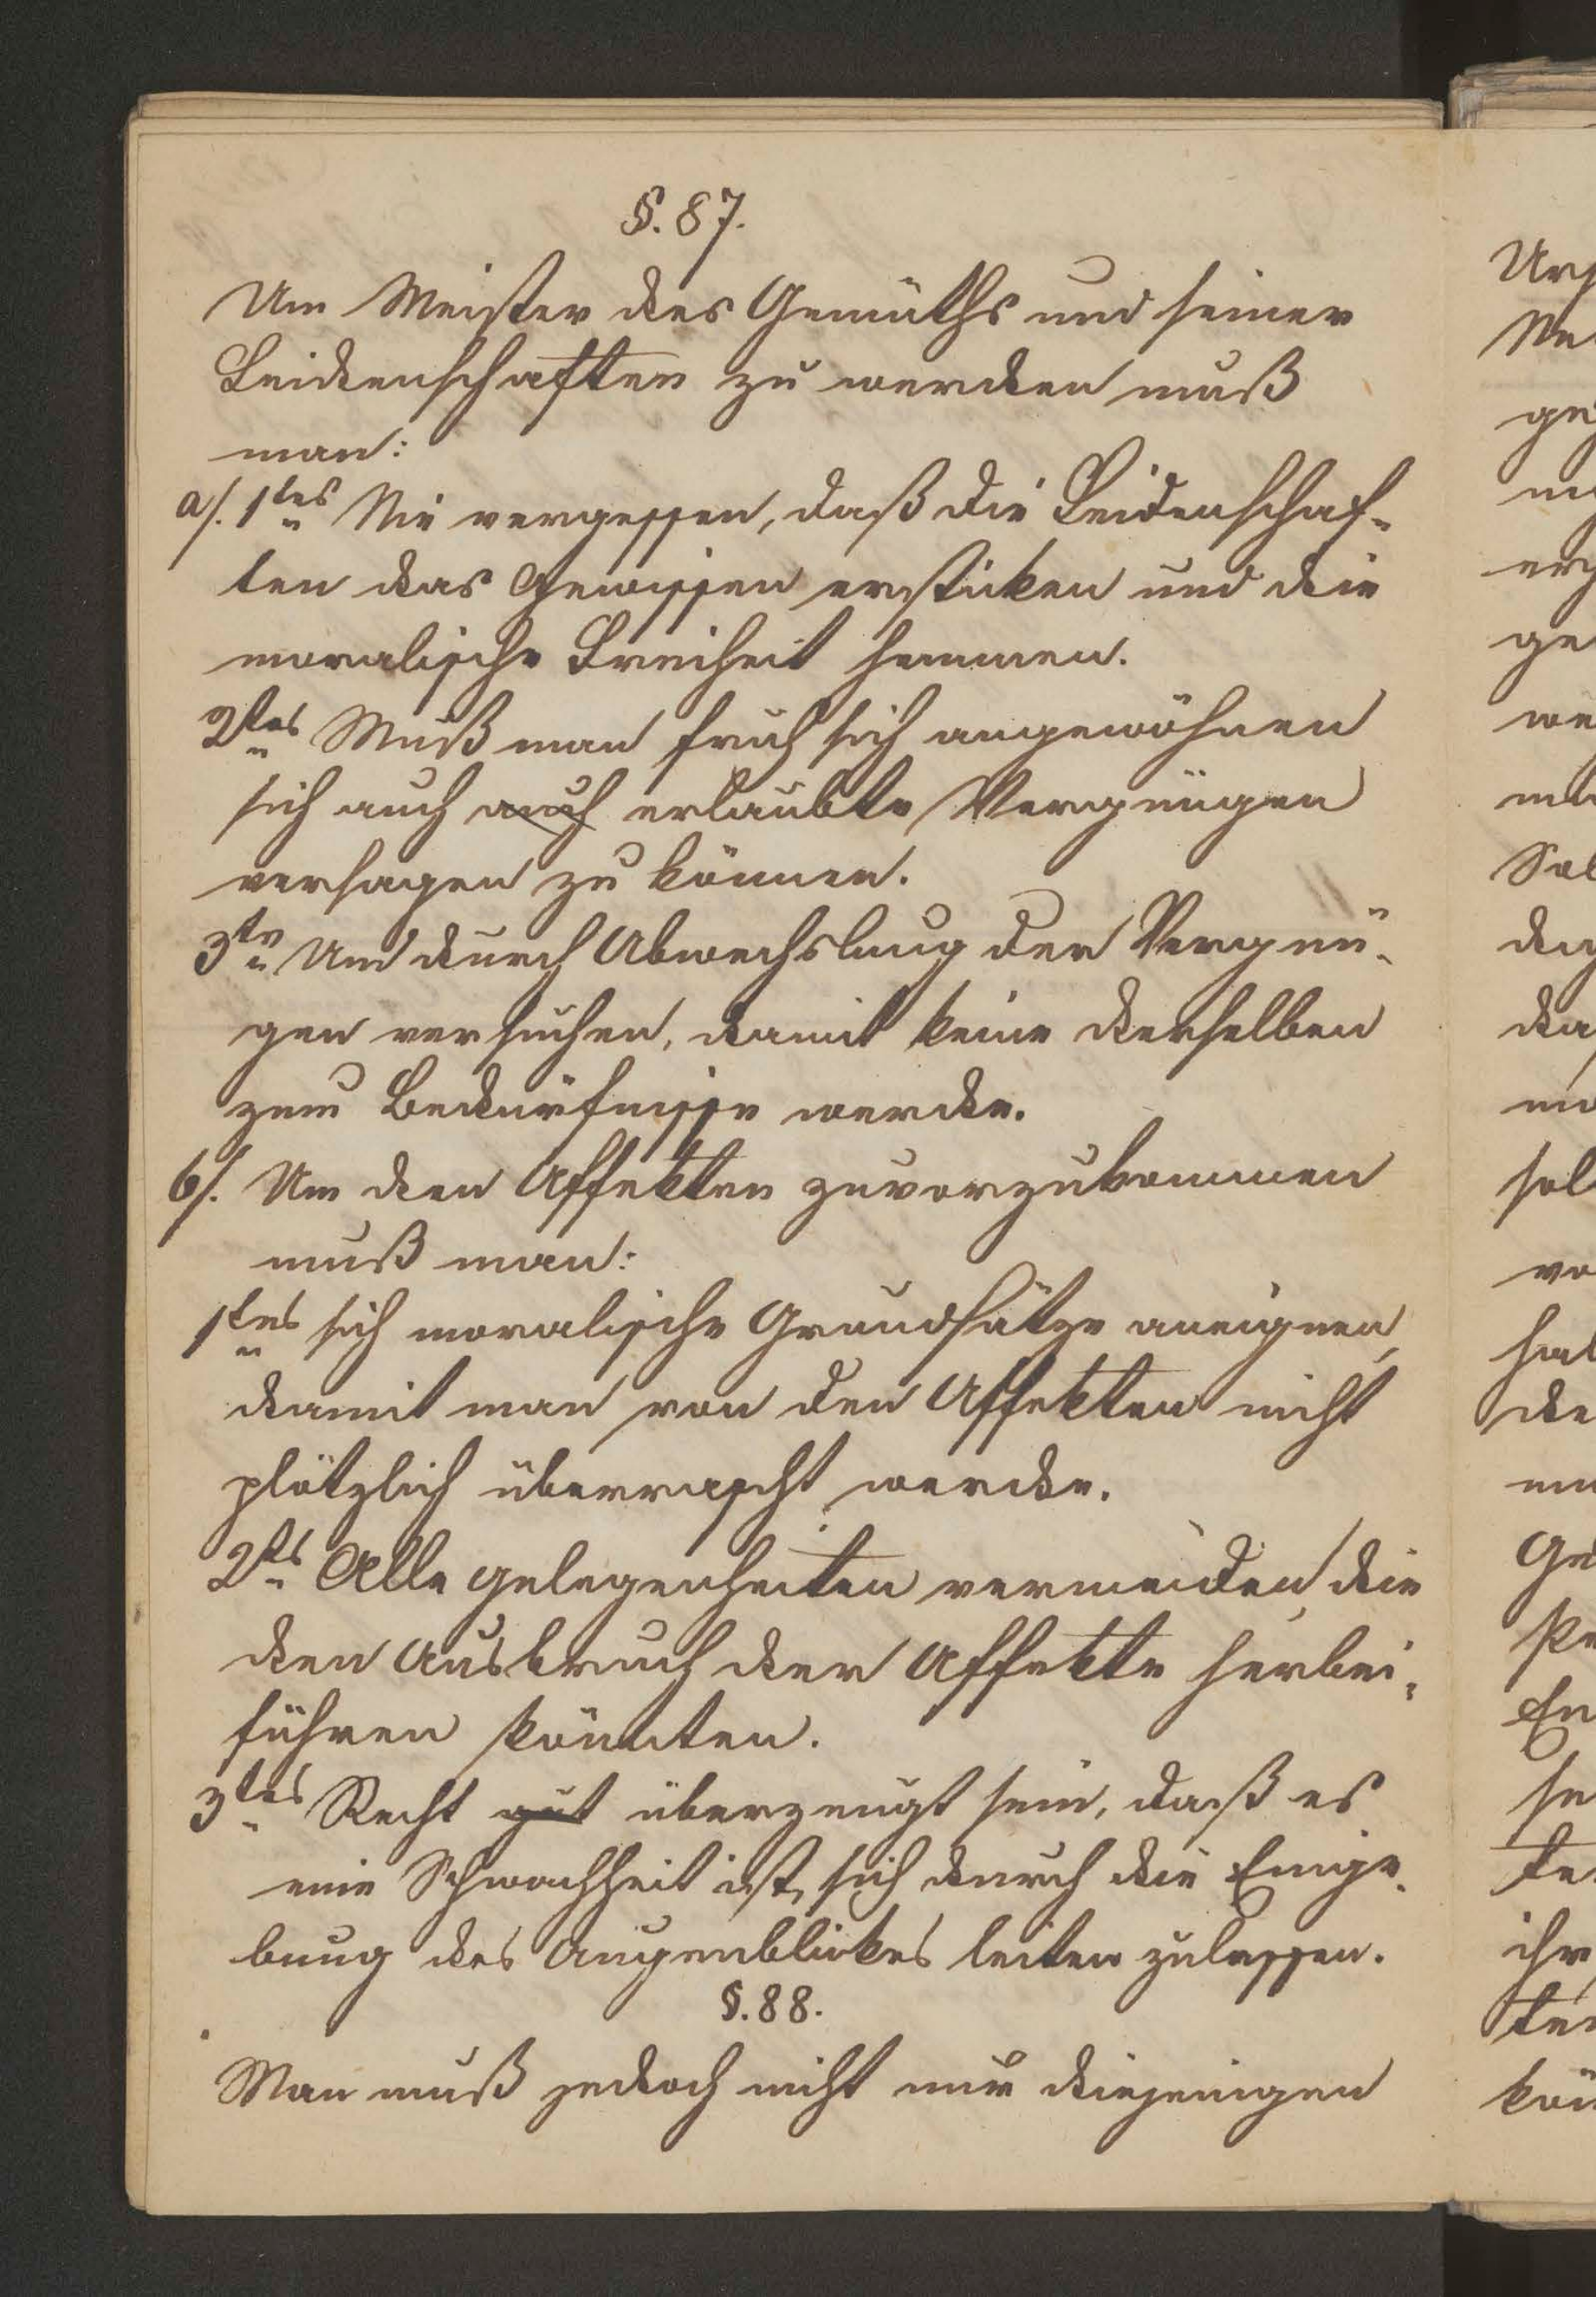 §. 87.
Um Meister des Gemüths und seiner
Leidenschaften zu werden muß
man:
a/. 1tes Nie vergessen, daß die Leidenschaf-
ten das Gewissen ersticken und die
moralische Freiheit hemmen.
2tes Muß man früh sich angewöhnen
sich auch auch erlaubte Vergnügen
versagen zu können.
3te Und durch Abwechslung der Vergnü-
gen versuchen, damit keine derselben
zum Bedürfnisse werde.
b/. Um den Affekten zuvorzukommen
muß man:
1tens sich moralische Grundsätze aneignen,
damit man von den Affekten nicht
plötzlich überrascht werde.
2ts Alle Gelegenheiten vermeiden, die
den Ausbruch der Affekte herbei-
führen könnten.
3tes Recht gut überzeugt sein, daß es
eine Schwachheit ist, sich durch die Einge-
bung des Augenblickes leiten zulassen.
§. 88.
Man muß jedoch nicht nur diejenigen